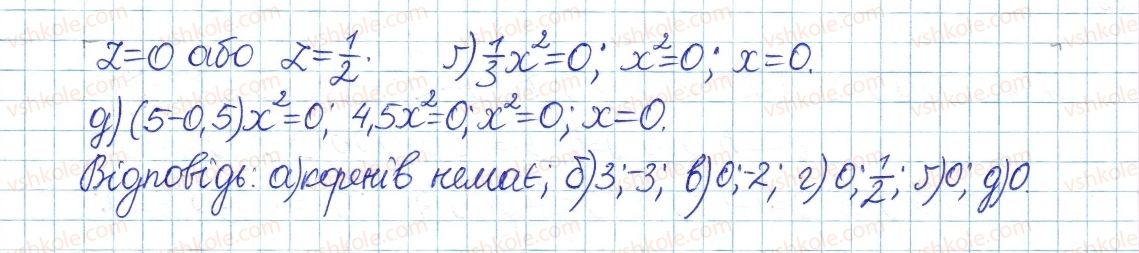 z=0 або z=1/2. ґ) 1/3 x²=0; x²=0; x=0.
д) (5-0,5)x²=0; 4,5x²=0; x²=0; x=0.
Відповідь: а) коренів немає; б) 3; -3; в) 0; -2; г) 0; 1/2; ґ) 0; д) 0.